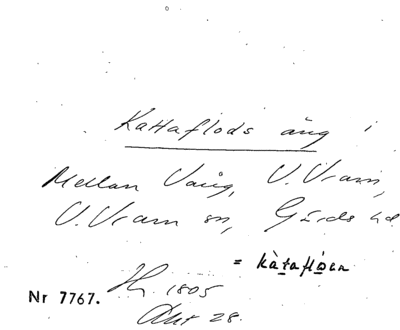 Kattaflods äng i
Mellan Vång, V. Vram,
V. Vram sn, Gärds hd
= kàtaflo̱en
Nr 7767.
1805
Akt 28.